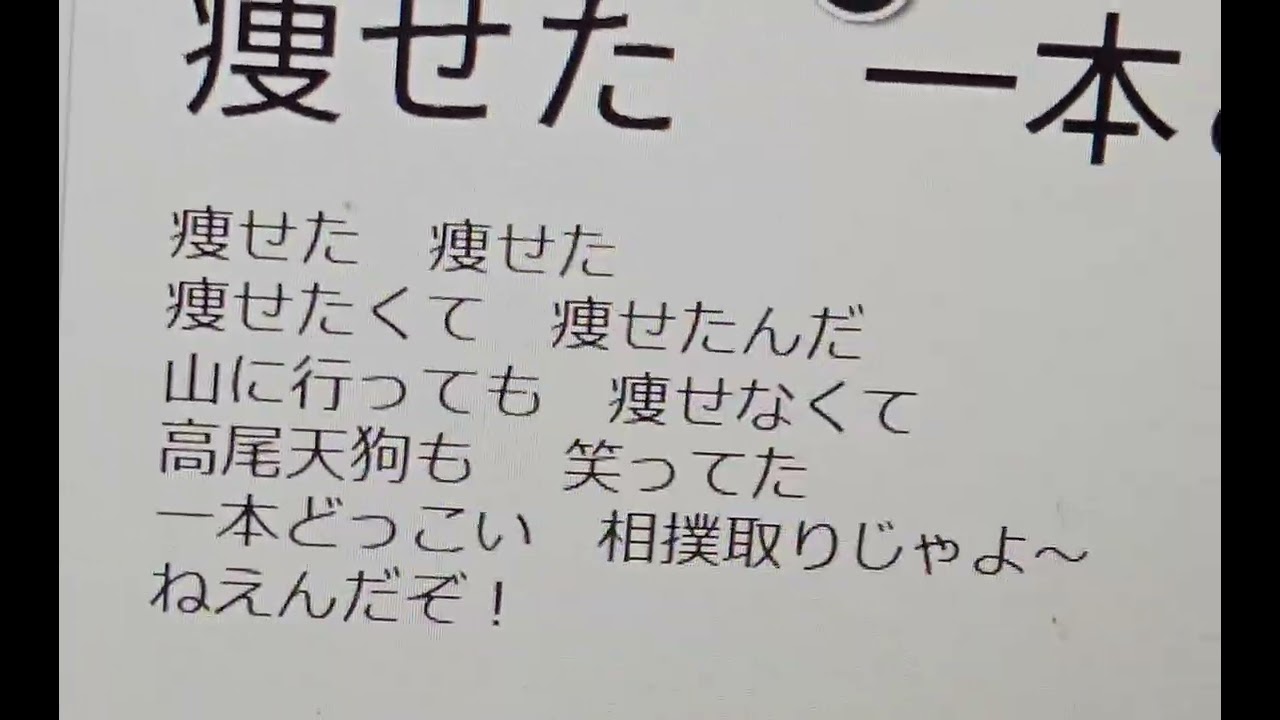 痩せた　一本
痩せた　痩せた
痩せたくて　痩せたんだ
山に行っても　痩せなくて
高尾天狗も　笑ってた
一本どっこい　相撲取りじゃよ～
ねえんだぞ！